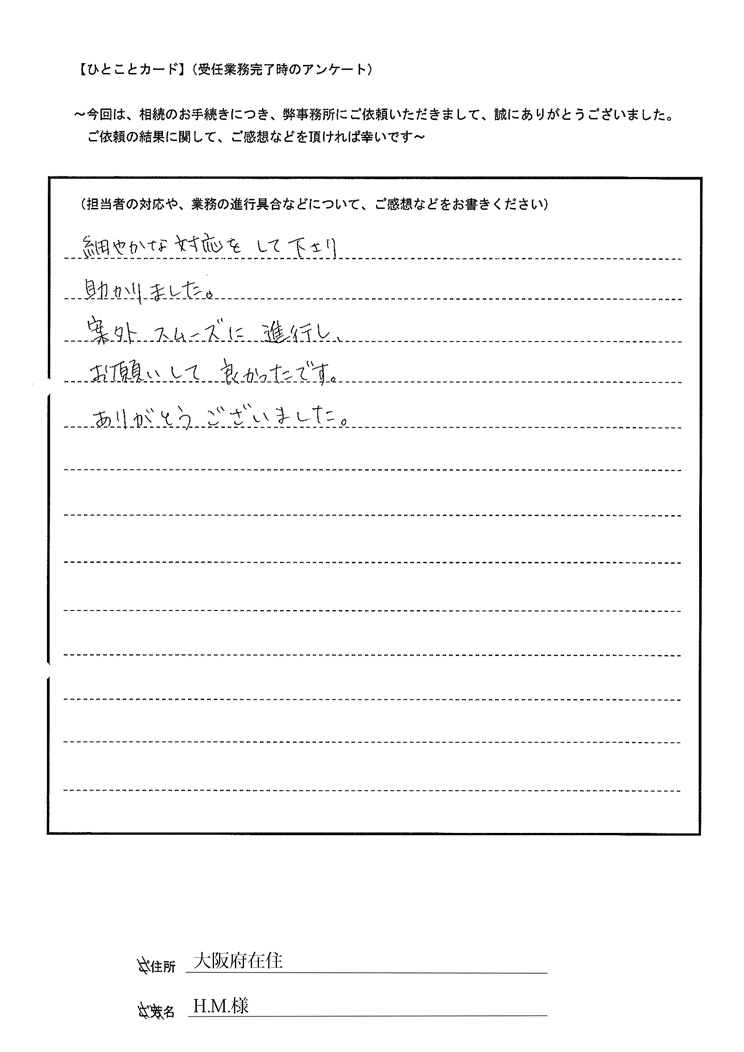 【ひとことカード】（受任業務完了時のアンケート）
～今回は、相続のお手続きにつき、弊事務所にご依頼いただきまして、誠にありがとうございました。
ご依頼の結果に関して、ご感想などを頂ければ幸いです～
（担当者の対応や、業務の進行具合などについて、ご感想などをお書きください）
細やかな対応をして下さり
助かりました。
案外スムーズに進行し、
お願いして良かったです。
ありがとうございました。
ご住所 大阪府在住
ご芳名 H.M.様